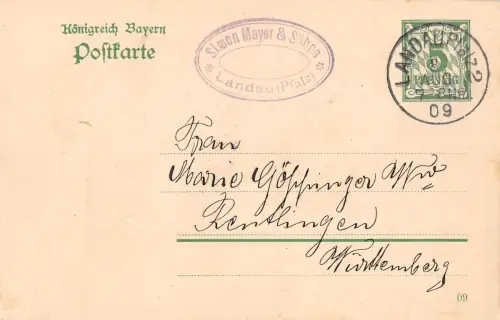 Königreich Bayern
Postkarte
Simon Mayer & Söhne
Landau (Pfalz)
LANDAU PFALZ 2
5
PFENNIG
09
Frau
Marie Göppinger Wwe
Reutlingen
Württemberg
09